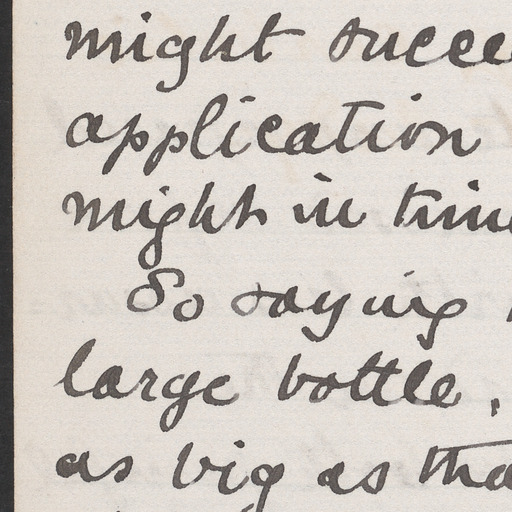 might succee
application
might in time
So saying
large bottle,
as big as tha